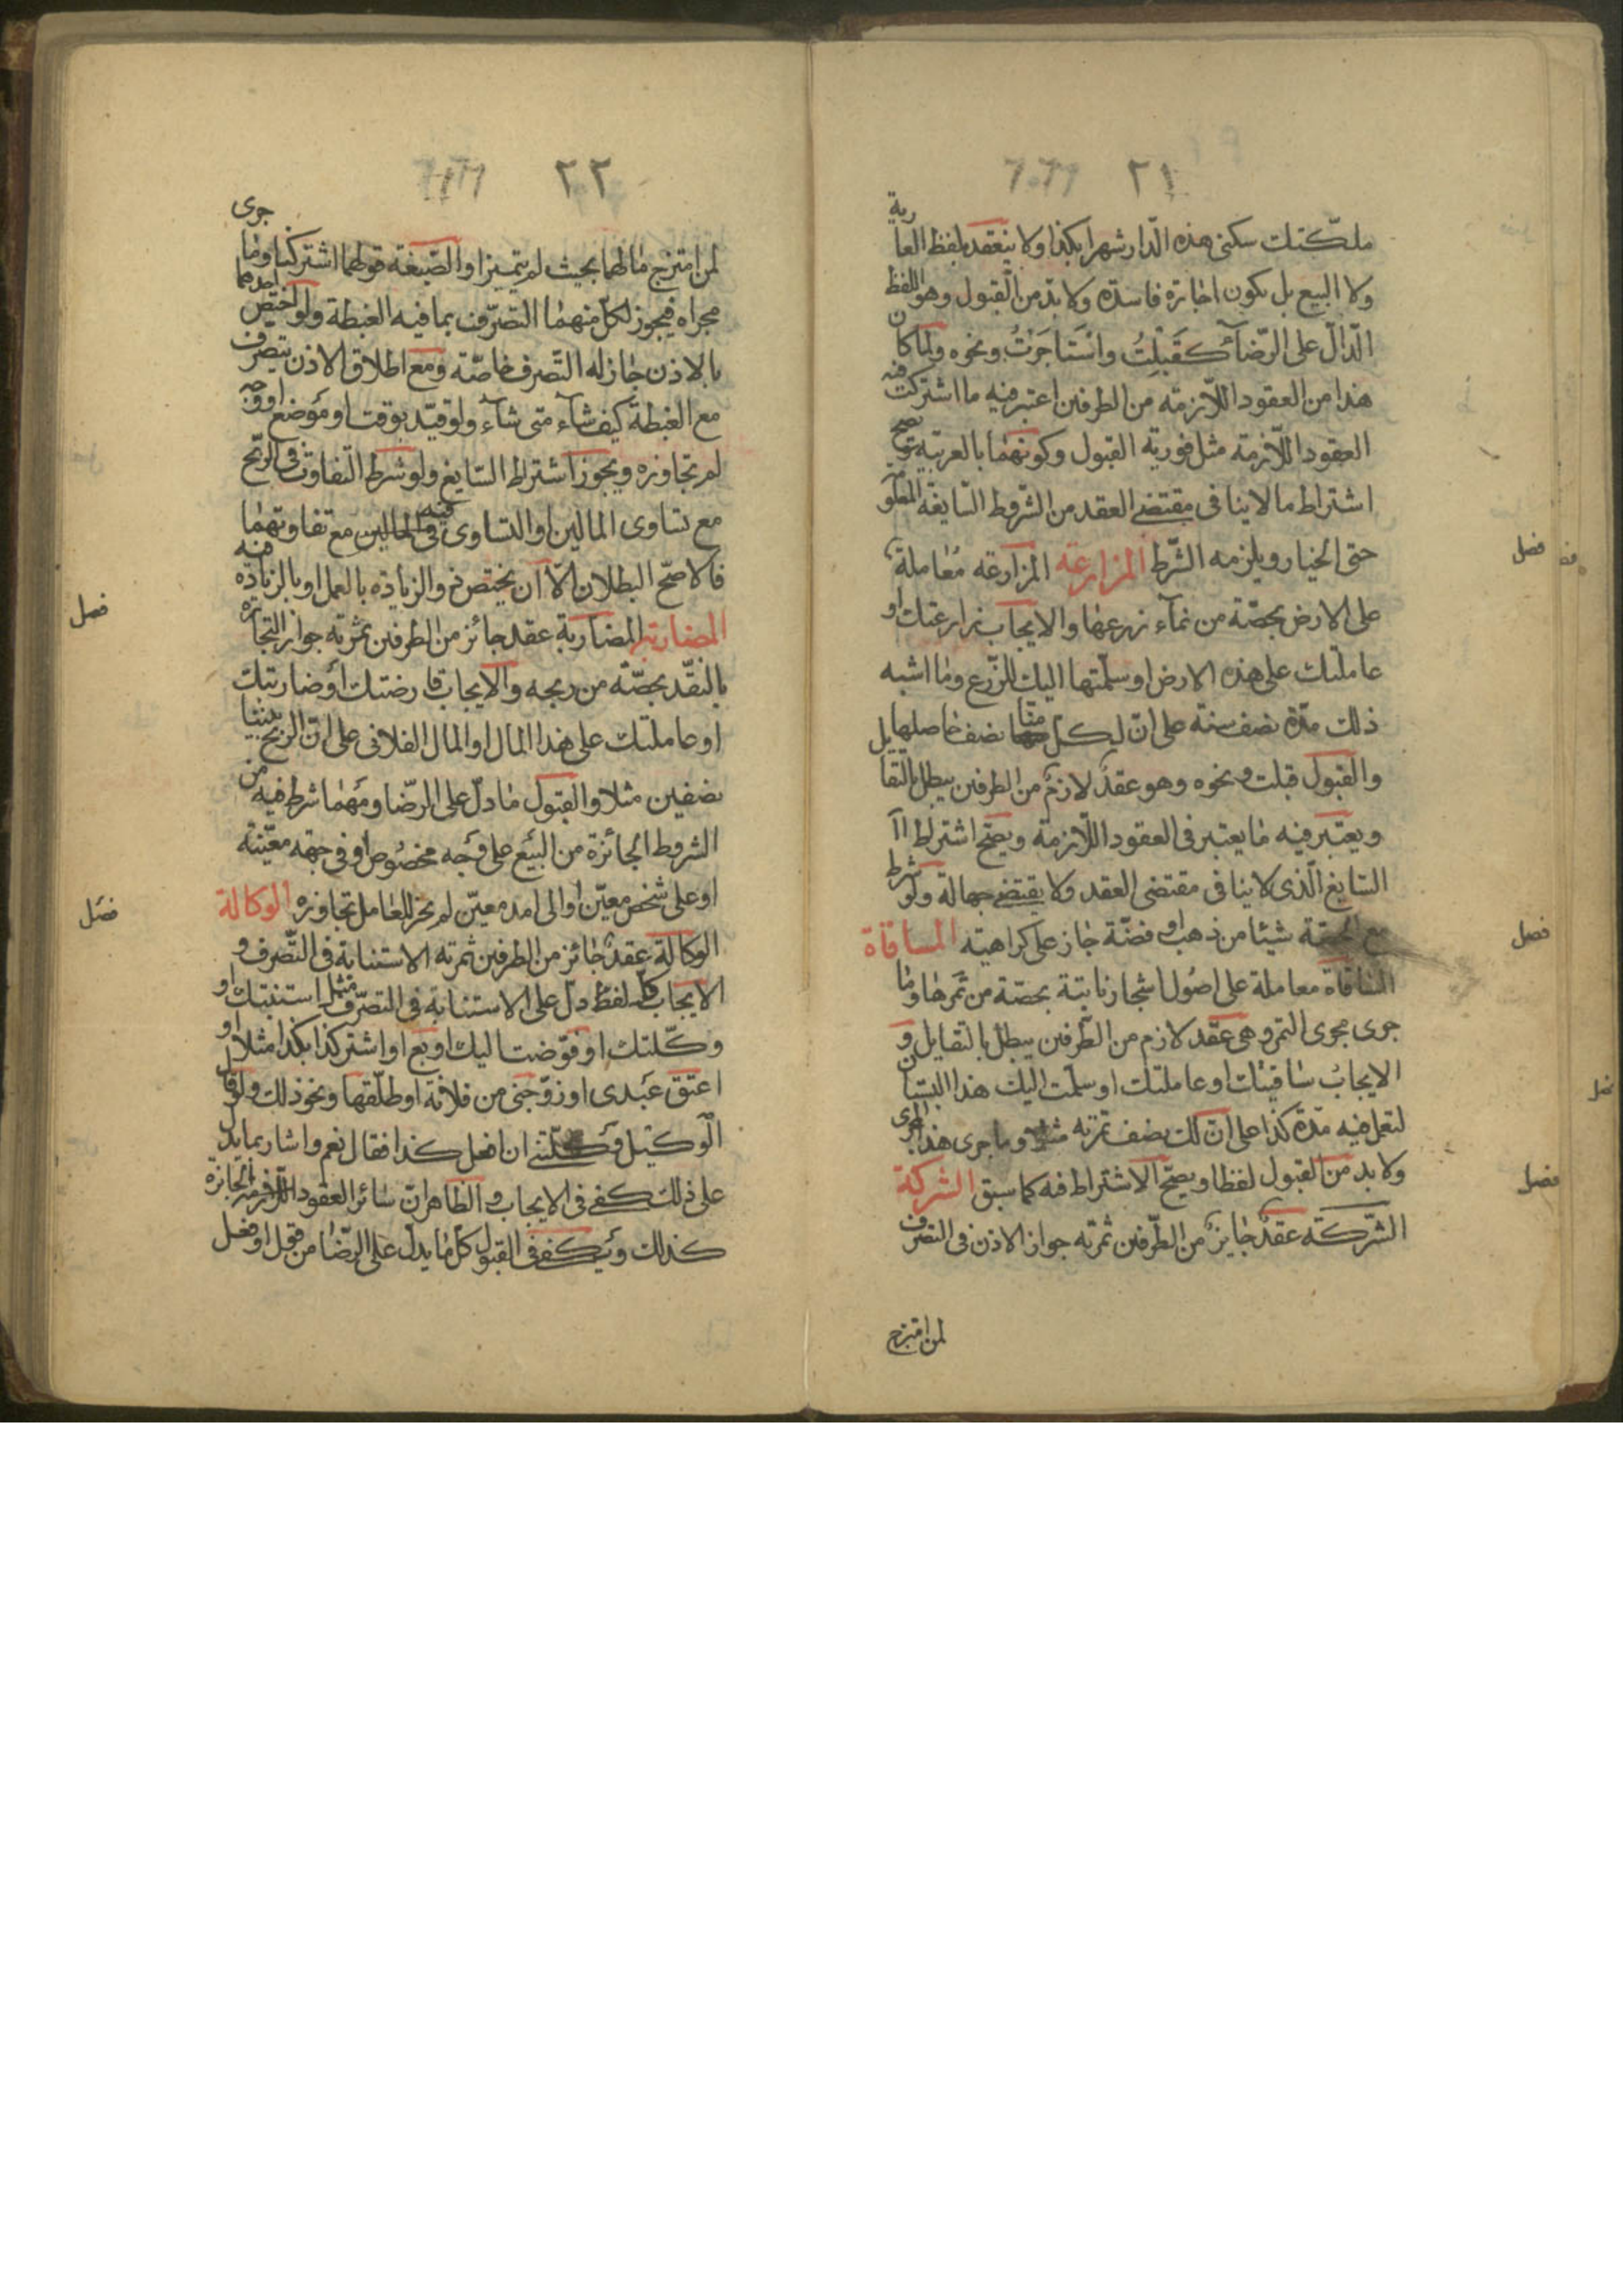 ٢١
ملّكتك سكنى هذه الدار شهرا بكذا ولا ينعقد بلفظ العارية
ولا البيع بل يكون اجارة فاسدة ولا بدّ من القبول وهو اللفظ
الدّالّ على الرّضآء كقبلتُ واستاجرتُ ونحوه ولمّا كان
هذا من العقود اللّازمة من الطرفين اعتبر فيه ما اشتركت فيه
العقود اللّازمة مثل فورية القبول وكونهما بالعربيّة ويصح
اشتراط ما لا ينافى مقتضى العقد من الشّروط السّايغة المعلومة
حتى الخيار ويلزمه الشّرط المزارعة المزارعة مُعاملة
على الارض بحصّة من نمآء زرعها والايجاب زارعتك او
عاملتك على هذه الارض او سلّمتها اليك للزّرع وما اشبه
ذلك مدّة نصف سنة على ان لكلّ منّا نصف حاصلها
والقبول قبلت ونحوه وهو عقدٌ لازمٌ من الطرفين يبطل بالتقايل
ويعتبر فيه ما يعتبر فى العقود اللّازمة ويصحّ اشتراط
السّايغ الّذى لا ينافى مقتضى العقد ولا يقتضى جهالة ولو شرط
مع الحصّة شيئا من ذهب او فضّة جاز على كراهية المساقاة
المساقاة معاملة على اصُول اشجار نابتة بحصّة من ثمرها وما
جرى مجرى الثمر وهى عقد لازم من الطّرفين يبطل بالتقايل و
الايجابُ ساقيتك او عاملتك او سلّمت اليك هذا البستان
لتعمل فيه مدّة كذا على انّ لك نصف ثمرته مثلا وما جرى هذا المجرى
ولا بد من القبول لفظا ويصحّ الاشتراط فيه كما سبق الشركة
الشّركة عقدٌ جايزٌ من الطّرفين ثمرته جواز الاذن فى التصرف
لمن امتزج
فصل
فصل
فصل
٢٢
لمن امتزج مالهما بحيث لم يتميّز او الصّيغة قولهما اشتركنا وما جرى
مجراه فيجوز لكلّ منهما التصرّف بما فيه الغبطة ولو اختصّ احدهما
بالاذن جاز له التّصرف خاصّة ومع اطلاق الاذن يتصرف
مع الغبطة كيف شآء متى شآء ولو قيّد بوقت او موضع او وجه
لم تجاوزه ويجوز اشتراط السّايغ ولو شرط التّفاوت فى الرّبح
مع تساوى المالين او التساوى فيه مع تفاوتهما
فالاصحّ البطلان الّا ان يختصّ ذو الزيادة بالعمل او بالزيادة فيه
المضاربة المضاربة عقد جائز من الطرفين ثمرته جواز التجارة
بالنقد بحصّة من ربحه والايجاب قارضتك او ضاربتك
او عاملتك على هذا المال او المال الفلانى على انّ الرّبح بيننا
نصفين مثلا والقبول ما دلّ على الرّضا ومهما شرط فيه من
الشروط الجائزة من البيع على وجه مخصُوص او فى جهة معيّنة
او على شخص معيّن او الى امد معيّن لم يجز للعامل تجاوزه الوكالة
الوكالة عقدٌ جائز من الطرفين ثمرته الاستنابة فى التّصرف و
الايجاب كلّ لفظ دلّ على الاستنابة فى التصرّف مثل استنبتك او
وكّلتك او فوّضت اليك او بع او اشتر كذا بكذا مثلا او
اعتق عبدى او زوّجنى من فلانة او طلّقها ونحو ذلك ولو قال
الوكيل وكّلتنى ان افعل كذا فقال نعم واشار بما يدل
على ذلك كفى فى الايجاب والظاهر انّ سائر العقود الجائزة
كذلك ويكفى فى القبول كلّ ما يدلّ على الرّضا من قول او فعل
فصل
فصل